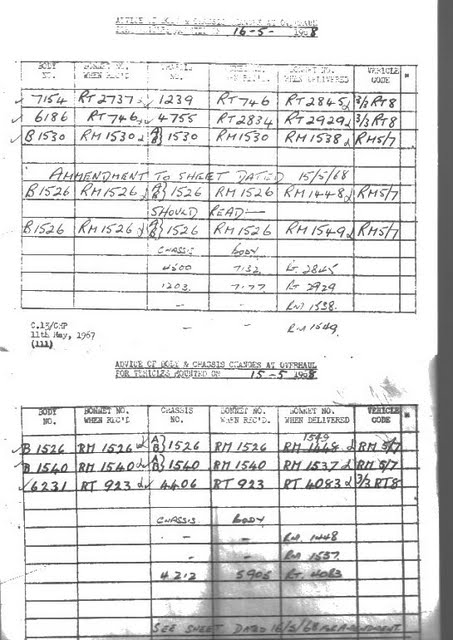 ADVICE OF BODY & CHASSIS CHANGES AT OVERHAUL
16-5- 1968
BODY NO. BONNET NO. WHEN REC'D. CHASSIS NO. BONNET NO. WHEN REC'D. BONNET NO. WHEN DELIVERED VEHICLE CODE
7154 RT 2737 1239 RT 746 RT 2845 3/3 RT8
6186 RT 746 4755 RT 2834 RT 2929 3/3 RT8
B1530 RM 1530 A B} 1530 RM 1530 RM 1538 RM 5/7
AMMENDMENT TO SHEET DATED 15/5/68
B1526 RM 1526 A B} 1526 RM 1526 RM 1448 RM 5/7
SHOULD READ—
B1526 RM 1526 A B} 1526 RM 1526 RM 1549 RM 5/7
CHASSIS BODY
4500 7132 RT 2845
1203 7177 RT 2929
- - RM 1538
- - RM 1549
C.13/CHP
11th May, 1967
(111)
ADVICE OF BODY & CHASSIS CHANGES AT OVERHAUL
FOR VEHICLES MOUNTED ON 15-5- 1968
BODY NO. BONNET NO. WHEN REC'D. CHASSIS NO. BONNET NO. WHEN REC'D. BONNET NO. WHEN DELIVERED VEHICLE CODE
1549
B 1526 RM 1526 A B} 1526 RM 1526 RM 1448 RM 5/7
B 1540 RM 1540 A B} 1540 RM 1540 RM 1537 RM 5/7
6231 RT 923 4406 RT 923 RT 4083 3/3 RT8
CHASSIS BODY
- - RM 1448
- - RM 1537
4212 5905 RT 4083
SEE SHEET DATED 16/5/68 FOR AMENDMENT